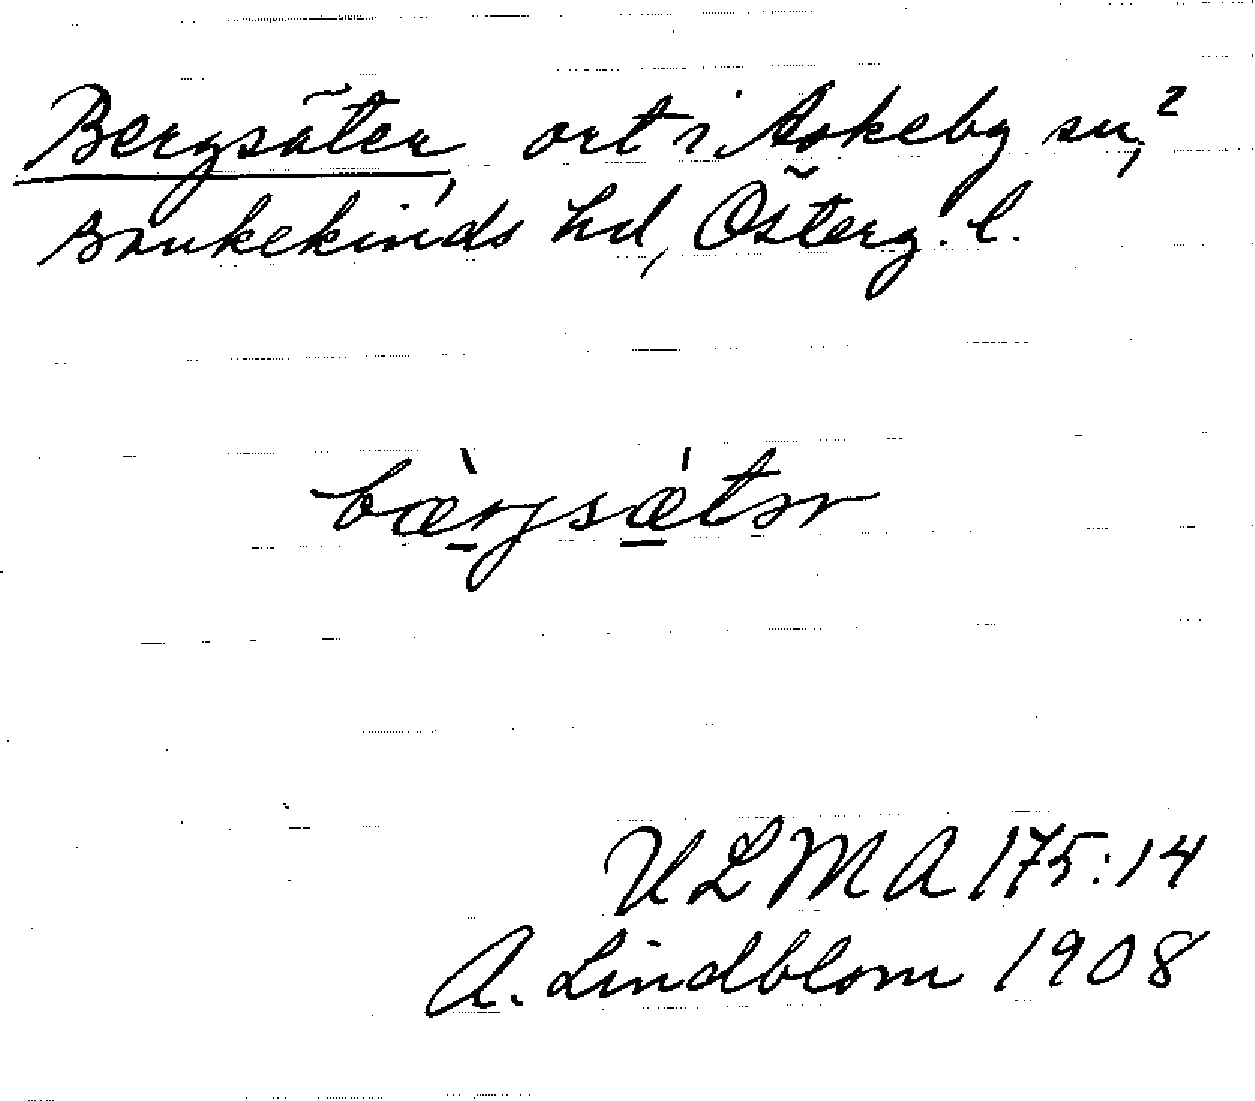 Bergsäter, ort i Askeby sn,²
Bankekinds hd, Österg. l.
bæ̀rgsǽtər
ULMA 175:14
A. Lindblom 1908